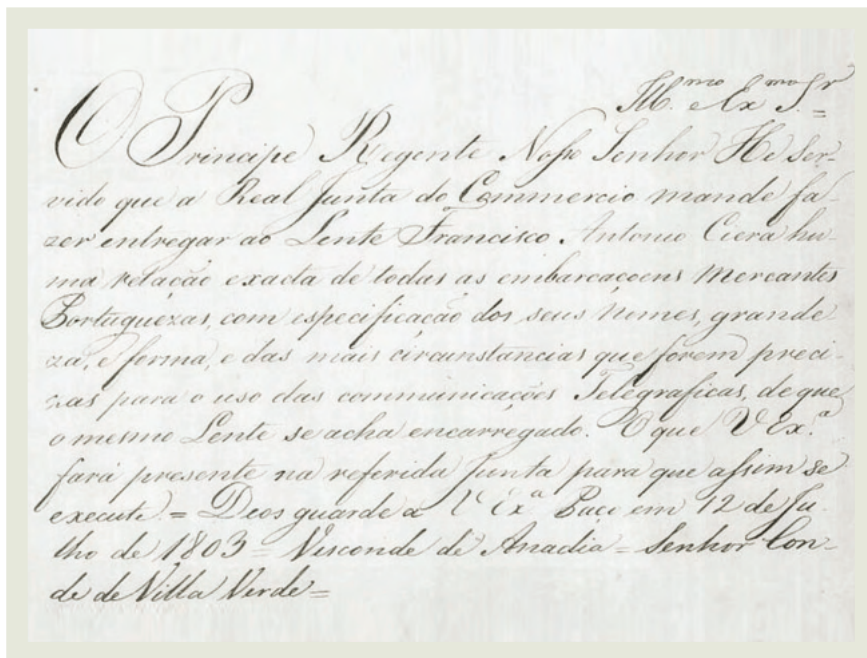 Ill.mo e Ex.mo Sr =
O Principe Regente Nosso Senhor He ser-
vido que a Real Junta do Commercio mande fa-
zer entregar ao Lente Francisco Antonio Ciera hu-
ma relação exacta de todas as embarcaçoens Mercantes
Portuguezas, com especificação dos seus nomes, grande
za, e forma, e das mais circunstancias que forem preci-
zas para o uso das communicações Telegraficas, de que
o mesmo Lente se acha encarregado. O que V Ex.a
fará presente na referida Junta para que assim se
execute. = Deos guarde a V Ex.a Paço em 12 de Ju-
lho de 1803 = Visconde de Anadia = Senhor Con-
de de Villa Verde =